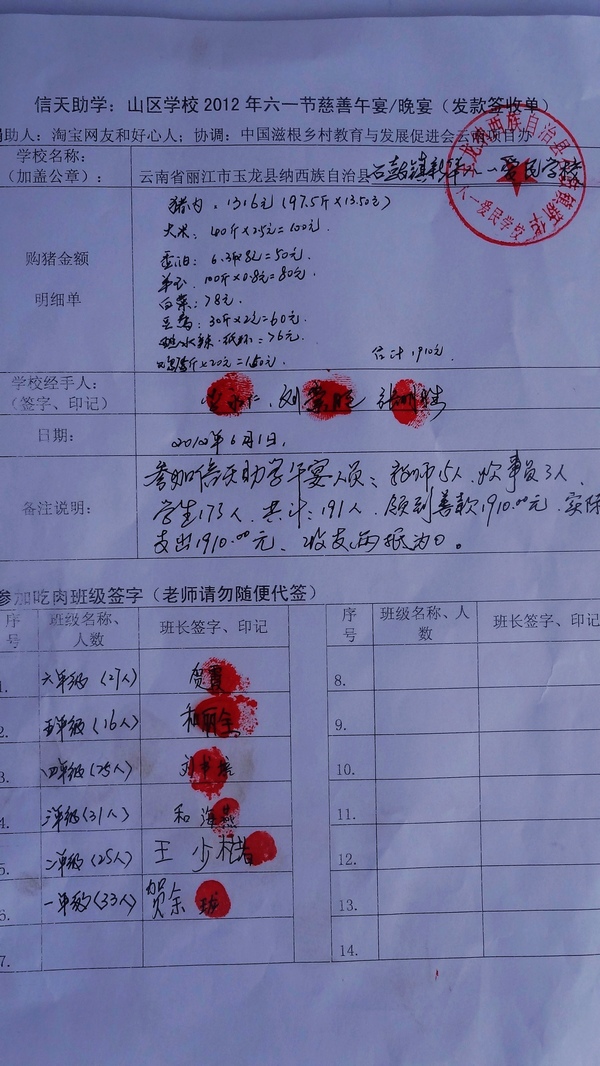 信天助学：山区学校 2012 年六一节慈善午宴/晚宴（发款签收单）
助人：淘宝网友和好心人；协调：中国滋根乡村教育与发展促进会云南项目办
学校名称：
（加盖公章）：
云南省丽江市玉龙县纳西族自治县石鼓镇新华八一爱民学校
购猪金额
明细单
猪肉：1316元（97.5斤×13.50元）
大米：40斤×2.5元=100元.
=50元.
100斤×0.8元=80元.
白菜：78元.
30斤×2元=60元.
76元.
×20元=150元.
合计1910元.
学校经手人：
（签字、印记）
日期：
2012年6月1日.
备注说明：
参加信天助学午宴人员：教师15人,炊事员3人,
学生173人,共计：191人,领到善款1910.00元,实际
支出1910.00元、收支两抵为0。
参加吃肉班级签字（老师请勿随便代签）
序号
班级名称、人数
班长签字、印记
序号
班级名称、人数
班长签字、印记
1.
六年级（27人）
贺霞
8.
2.
五年级（16人）
和丽全
9.
3.
四年级（25人）
10.
4.
三年级（31人）
和海燕
11.
5.
二年级（25人）
王少
12.
6.
一年级（33人）
贺余
13.
7.
14.